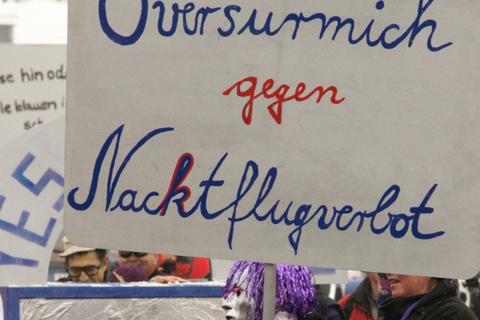 Oversurmich
gegen
Nacktflugverbot
se hin od
le klauen i
YES